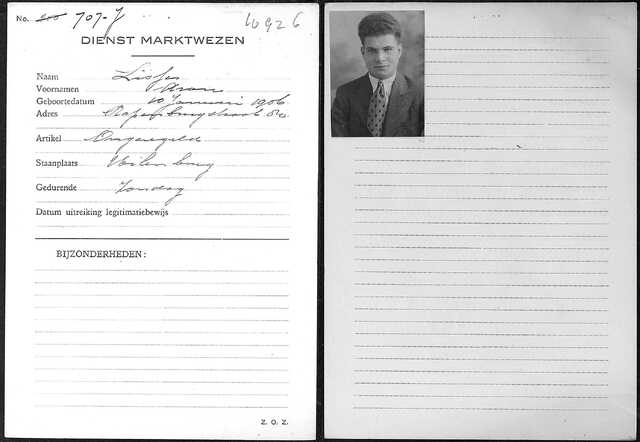 No. 707-J 16926
DIENST MARKTWEZEN
Naam
Voornamen Aron
Geboortedatum 10 Januari 1906
Adres
Artikel Ongeregeld
Staanplaats Uilenburg
Gedurende Zondag
Datum uitreiking legitimatiebewijs
BIJZONDERHEDEN:
Z. O. Z.